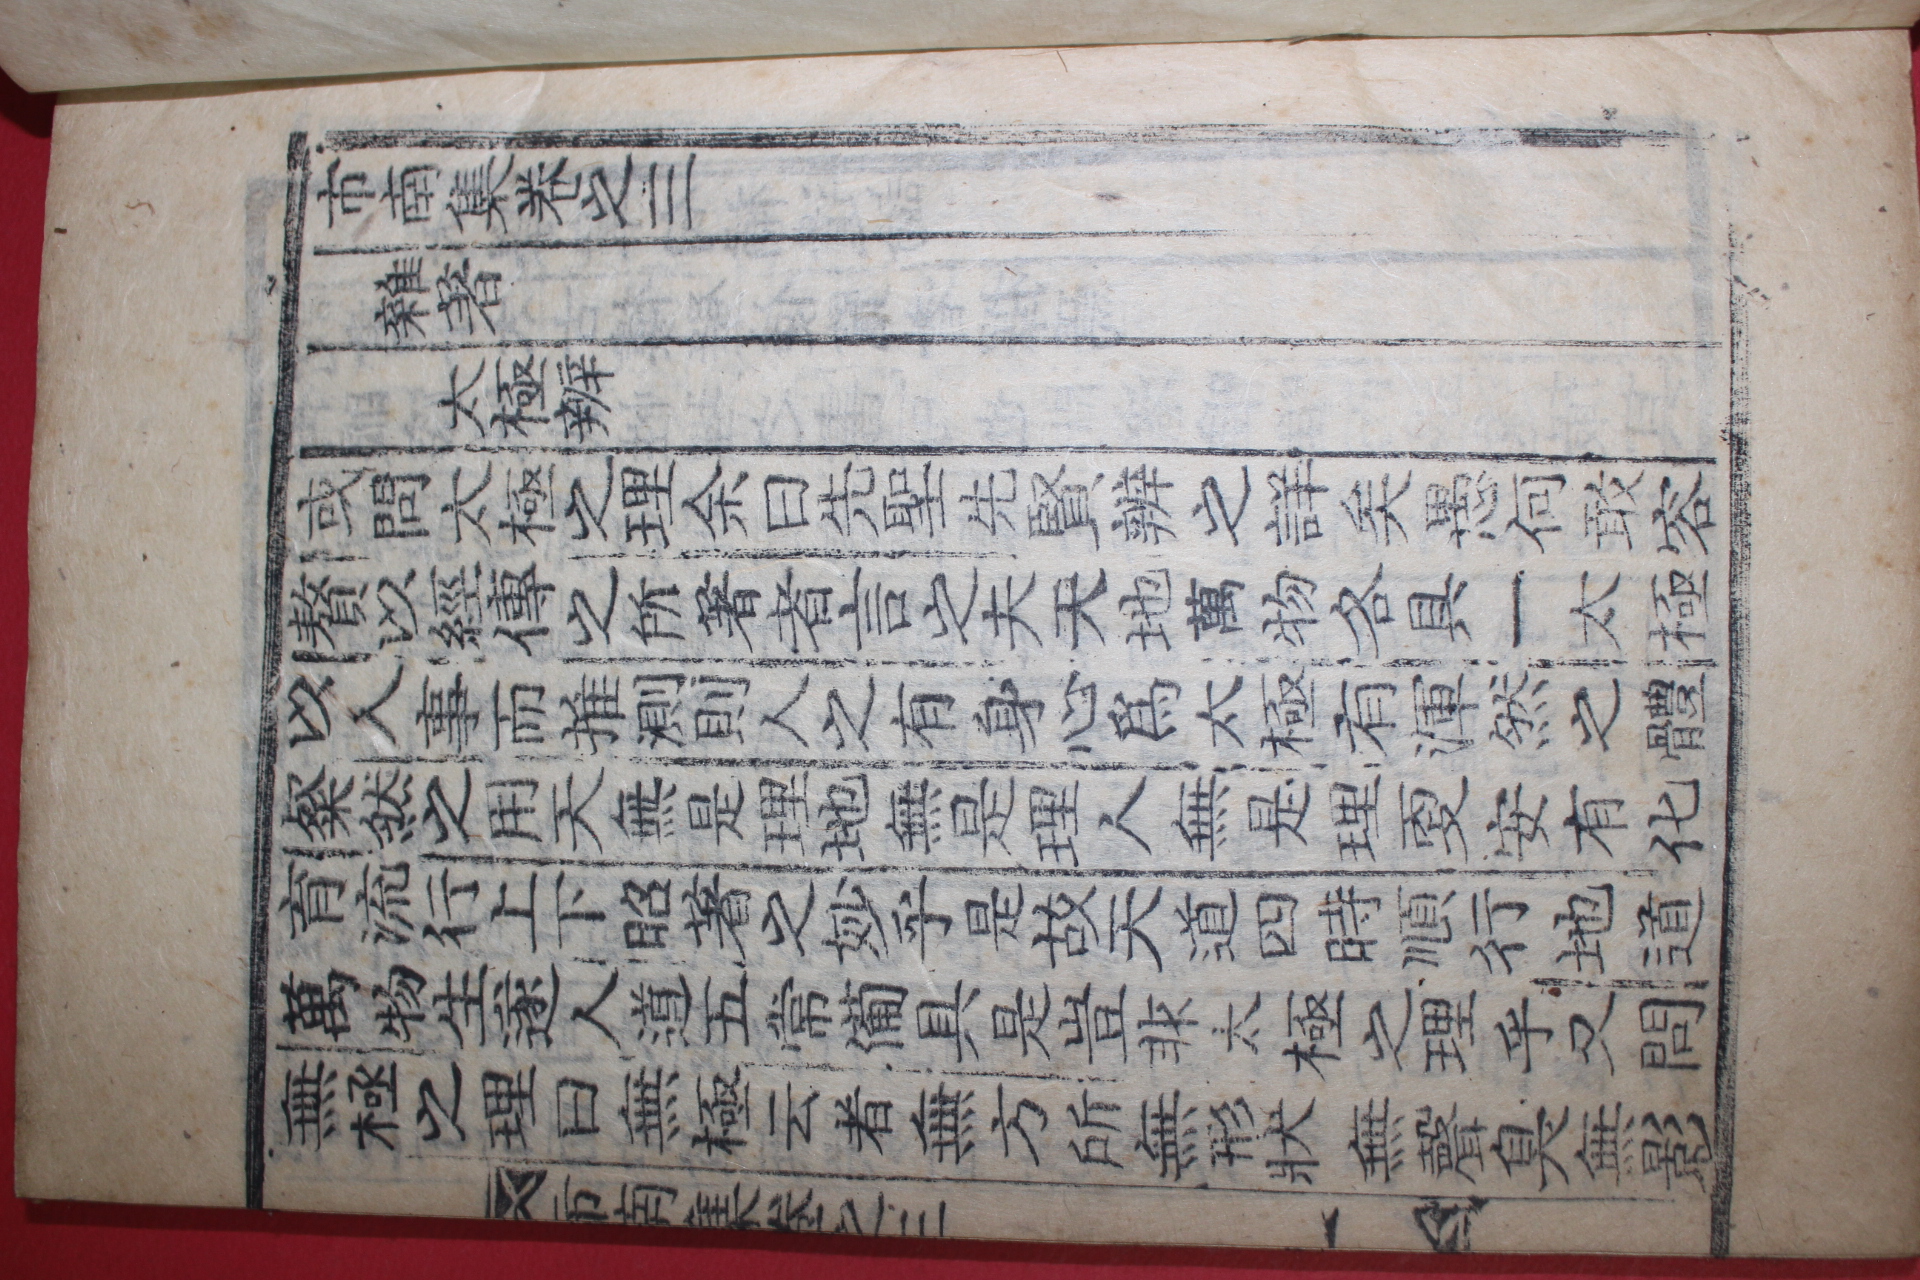 市南集卷之三
雜著
太極辨
或問太極之理余曰先聖先賢辨之詳矣愚何敢容
贅以經傳之所著者言之夫天地萬物各具一太極
以人事而推測則人之有身心爲太極有渾然之體
粲然之用天無是理地無是理人無是理更安有化
育流行上下昭著之妙乎是故天道四時順行地道
萬物生遂人道五常俻具是豈非太極之理乎又問
無極之理曰無極云者無方所無形狀無聲臭無影
市南集卷之三